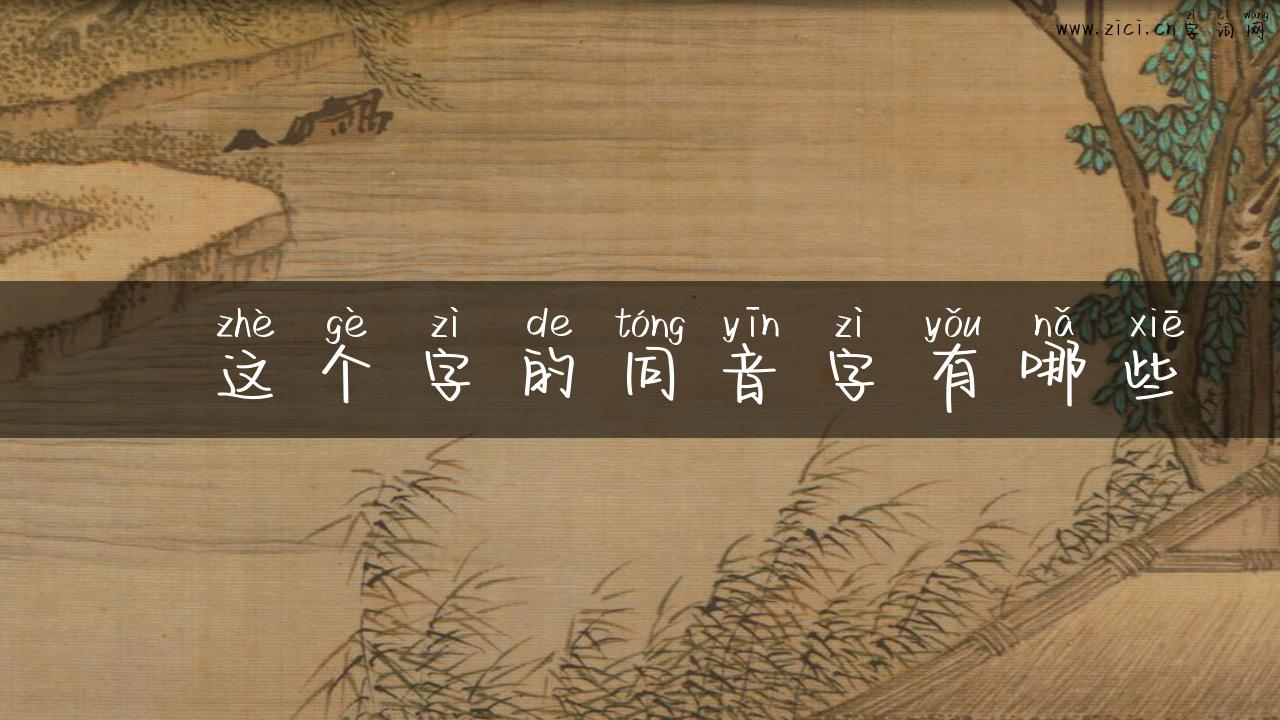 zì cí wǎng
www.zici.cn字词网
zhè gè zì de tóng yīn zì yǒu nǎ xiē
这个字的同音字有哪些